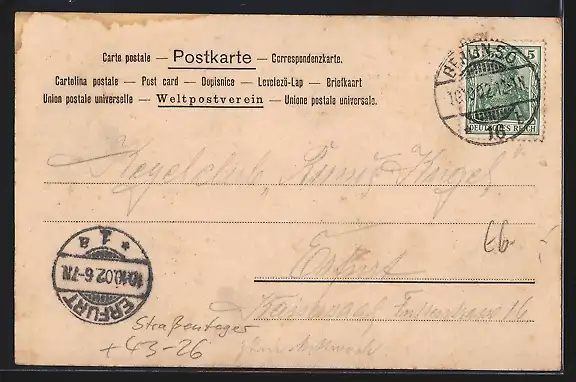 Carte postale — Postkarte — Correspondenzkarte.
Cartolina postale — Post card — Dopisnice — Levelező-Lap — Briefkaart
Union postale universelle — Weltpostverein — Unione postale universale.
5
DEUTSCHES REICH
BERLIN.SO
16
Kegelclub, Kunst Kugel,
Erfurt
16
E6-
* 1 a
10.10.02 6-7N.
ERFURT
Straßenlager
+43-26